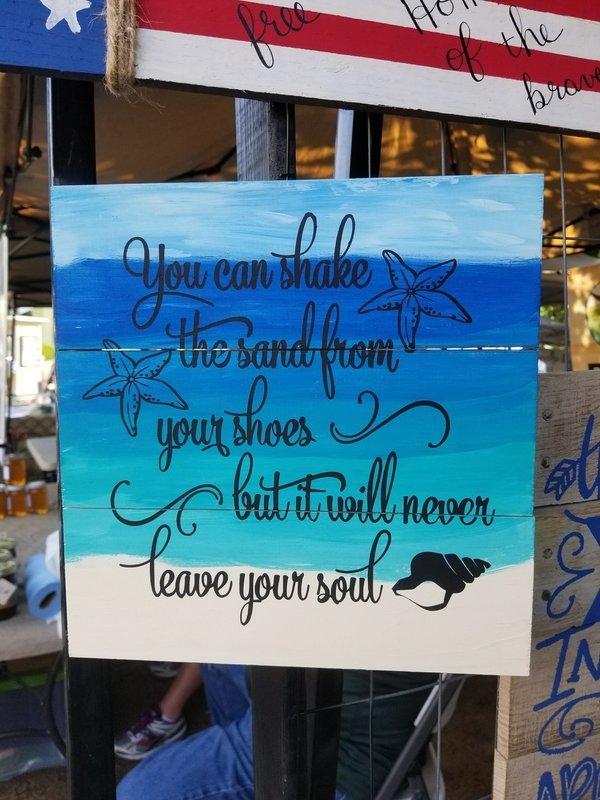 free
Hom
of the
brave
You can shake
the sand from
your shoes
but it will never
leave your soul
IN